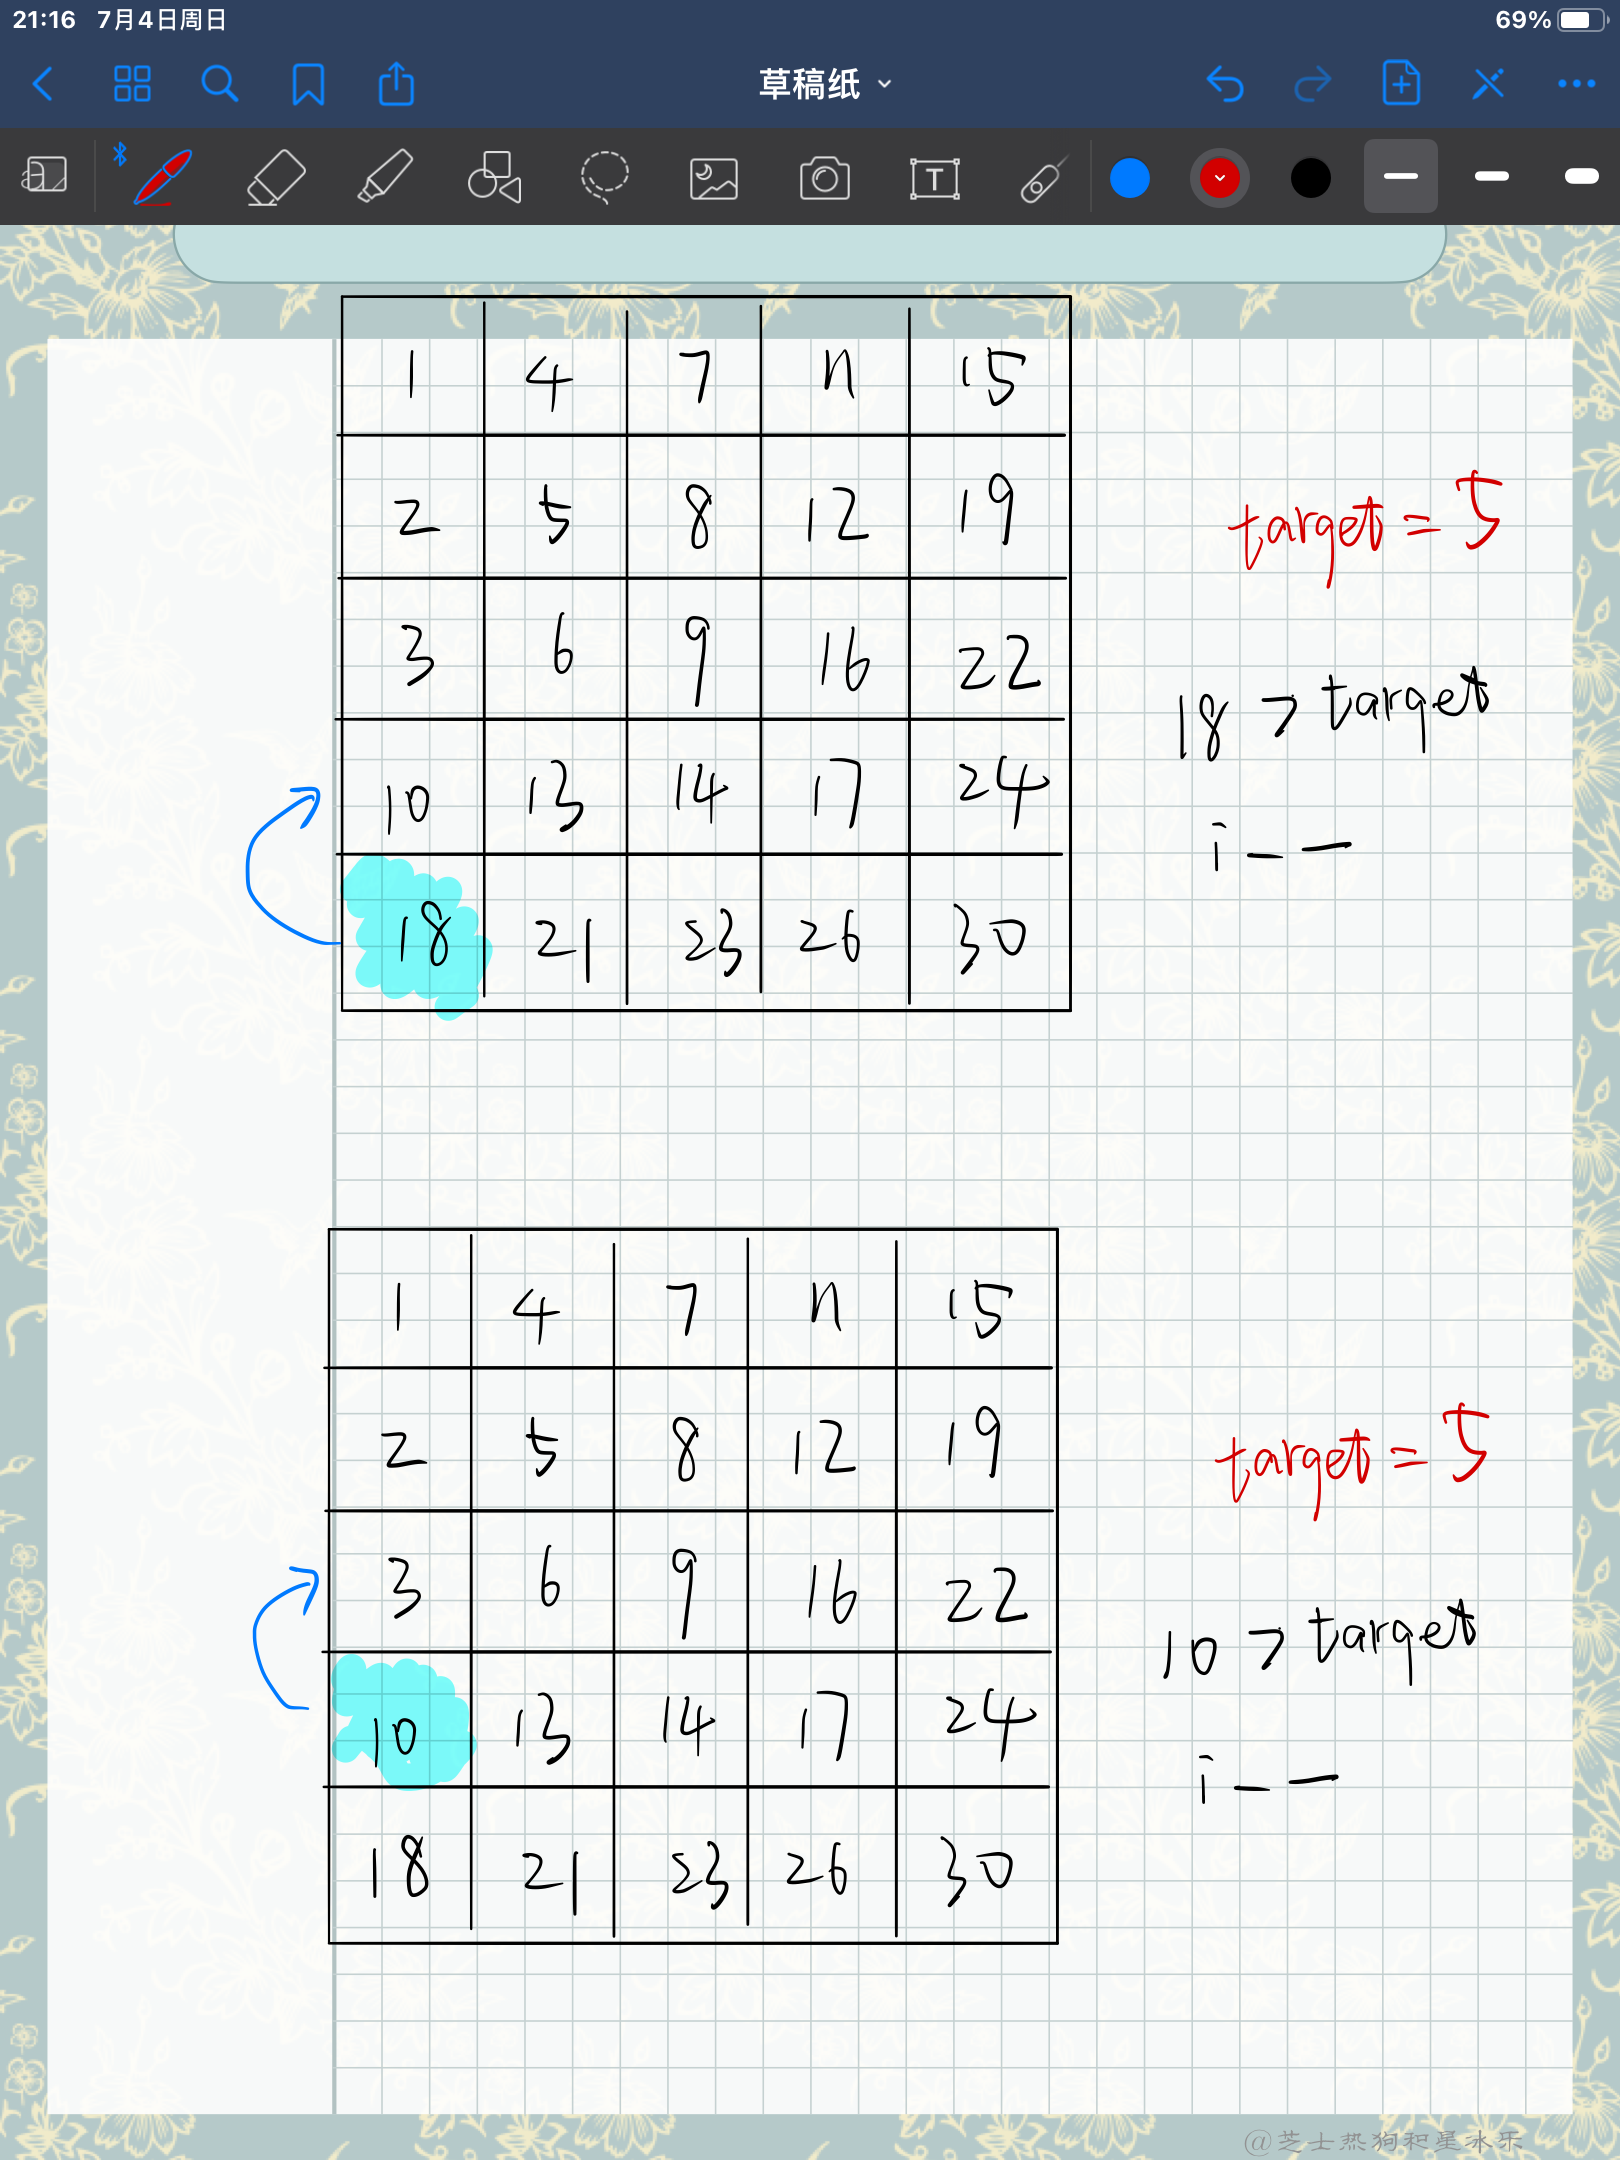 21:16 7月4日周日 69%
草稿纸
T
1 4 7 11 15
2 5 8 12 19
3 6 9 16 22
10 13 14 17 24
18 21 23 26 30
target = 5
18 > target
i - -
1 4 7 11 15
2 5 8 12 19
3 6 9 16 22
10 13 14 17 24
18 21 23 26 30
target = 5
10 > target
i - -
@芝士热狗和星冰乐